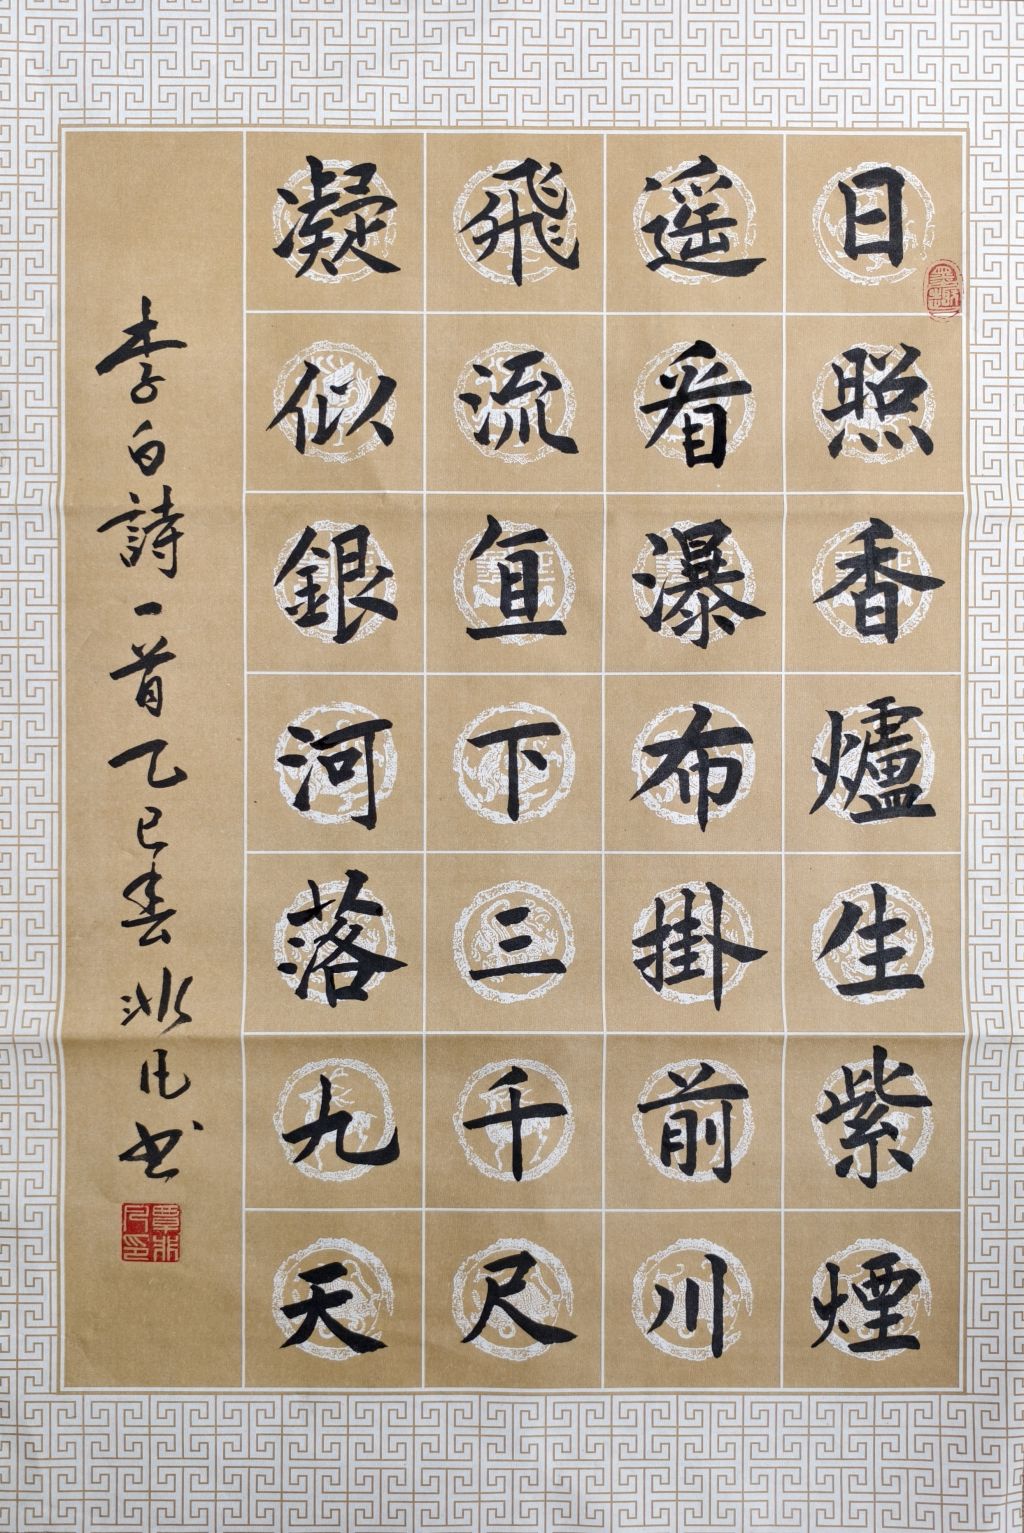 日照香爐生紫煙
遥看瀑布掛前川
飛流直下三千尺
凝似銀河落九天
李白詩一首乙巳春冰凡書